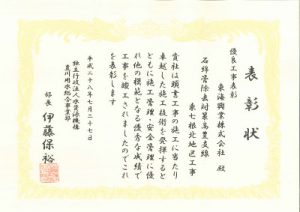 表彰状
優良工事表彰
東海興業株式会社 殿
石綿管除去対策高豊支線
東七根北地区工事
貴社は頭書工事の施工に当たり
卓越した施工技術を発揮すると
ともに施工管理・安全管理に優
れ他の模範となる優秀な成績で
工事を竣工されましたのでこれ
を表彰します
平成二十八年七月二十七日
独立行政法人水資源機構
豊川用水総合事業部
部長 伊藤保裕